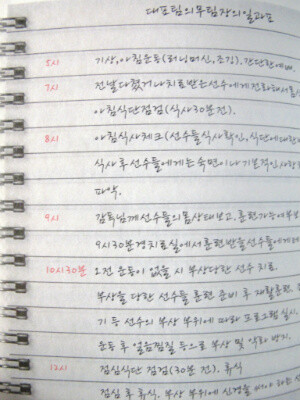 대표팀 의무팀장의 일과표
5시 기상, 아침운동(러닝머신, 조깅). 간단한 예배.
7시 전날 다쳤거나 치료받은 선수에게 전화해서 몸
아침식단점검(식사 30분 전).
8시 아침식사체크(선수들 식사 확인, 식단에 대한
식사 후 선수들에게는 숙면이나 기본적인 사항
파악.
9시 감독님께 선수들의 몸상태 보고, 훈련가능 여부
9시 30분경 치료실에서 훈련받을 선수들에게
10시 30분 오전 운동이 없을 시 부상당한 선수 치료.
부상을 당한 선수들 훈련 준비 후 재활훈련.
기 등 선수의 부상 부위에 따라 프로그램 실시.
운동 후 얼음찜질 등으로 부상 및 악화 방지.
12시 점심식단 점검(30분 전). 휴식
점심 후 휴식. 부상 부위에 신경을 써야 하는